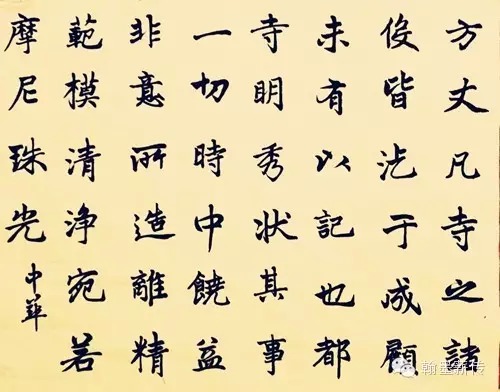 方丈凡寺之諸
役皆迄于成顧
未有以記也都
寺明秀状其事
一切時中饒益
非意所造離精
範模清浄宛若
摩尼珠光
中華
翰墨新传